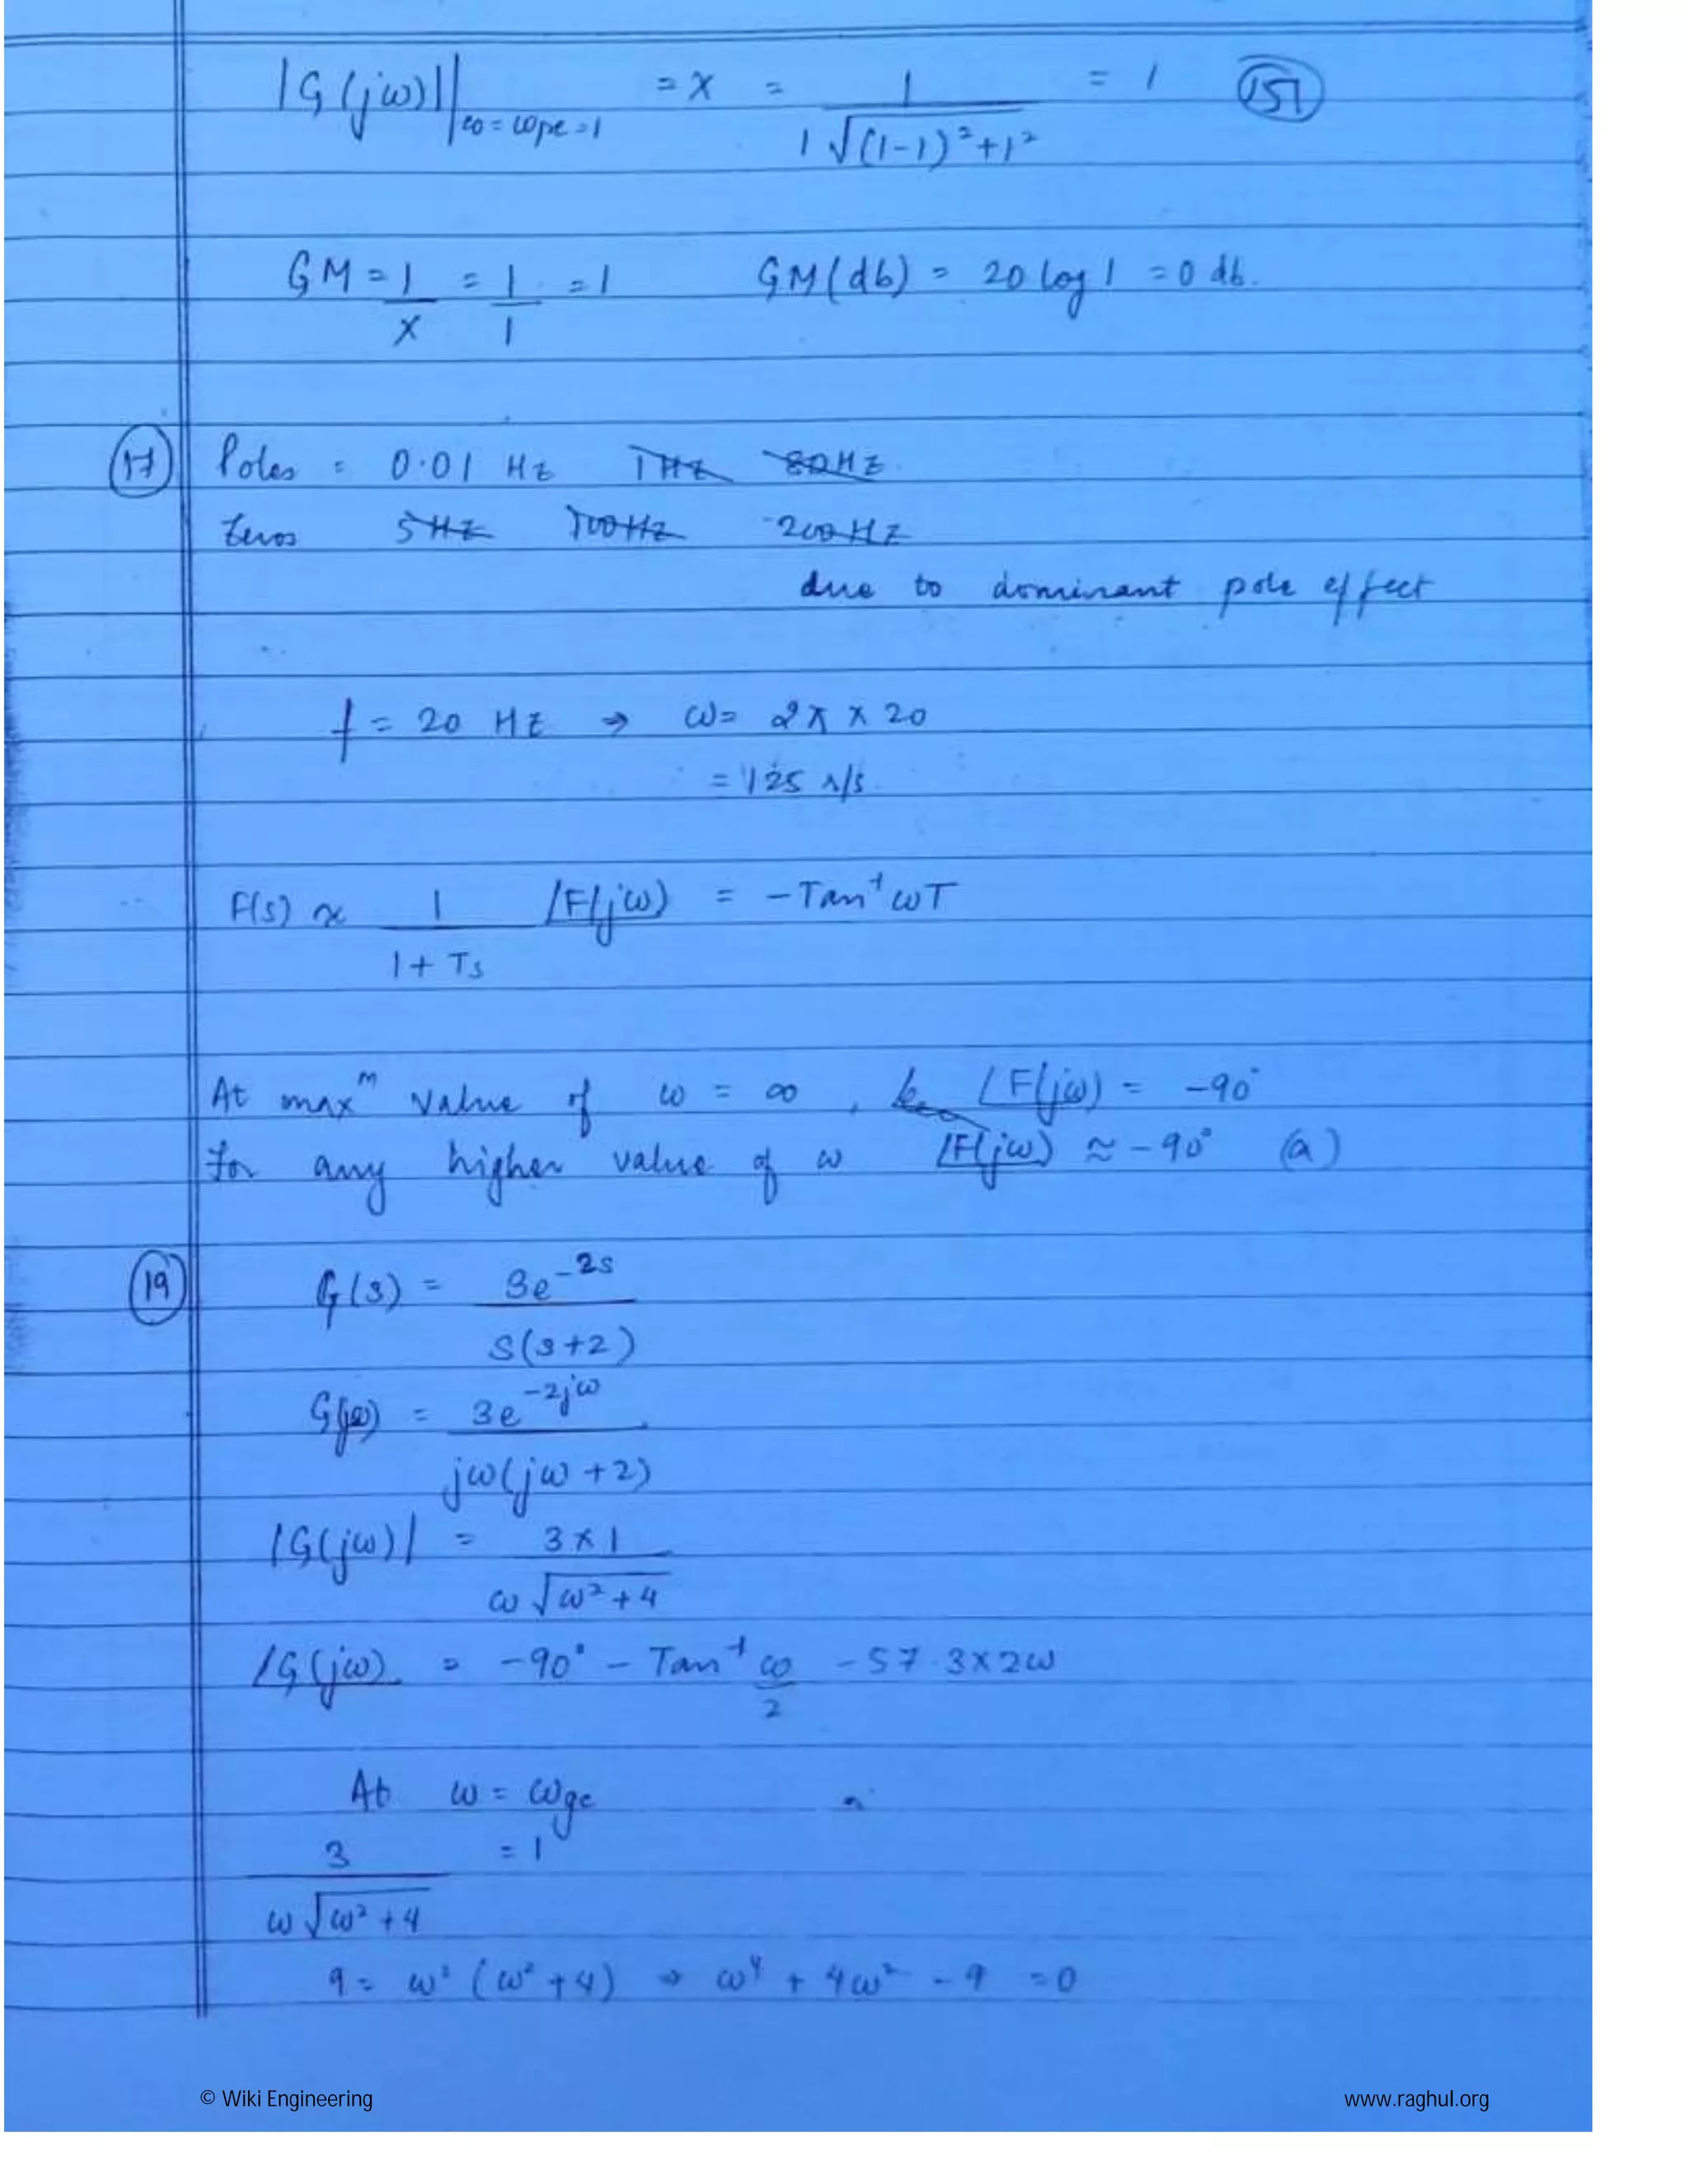 |G(jω)||ω=ωpc=1 = X = 1/(1√((1-1)²+1²)) = 1 (151)
GM = 1/X = 1/1 = 1 GM(db) = 20 log 1 = 0 db.
(17) Poles = 0.01 Hz 1 Hz 80Hz
Zeros 5Hz 100Hz 200Hz
due to dominant pole effect
f = 20 Hz ⇒ ω= 2π × 20
= 125 r/s
F(s) ∝ 1/(1+Ts) ∠F(jω) = -Tan⁻¹ωT
At maxᵐ value of ω = ∞, ∠F(jω) = -90°
for any higher value of ω ∠F(jω) ≈ -90° (a)
(19) G(s) = 3e^-2s/(s(s+2))
G(jω) = 3e^-2jω/(jω(jω+2))
|G(jω)| = 3×1/(ω√(ω²+4))
∠G(jω) = -90° - Tan⁻¹ ω/2 - 57.3×2ω
At ω = ωgc
3/(ω√(ω²+4)) = 1
9 = ω²(ω²+4) ⇒ ω⁴ + 4ω² - 9 = 0
© Wiki Engineering www.raghul.org